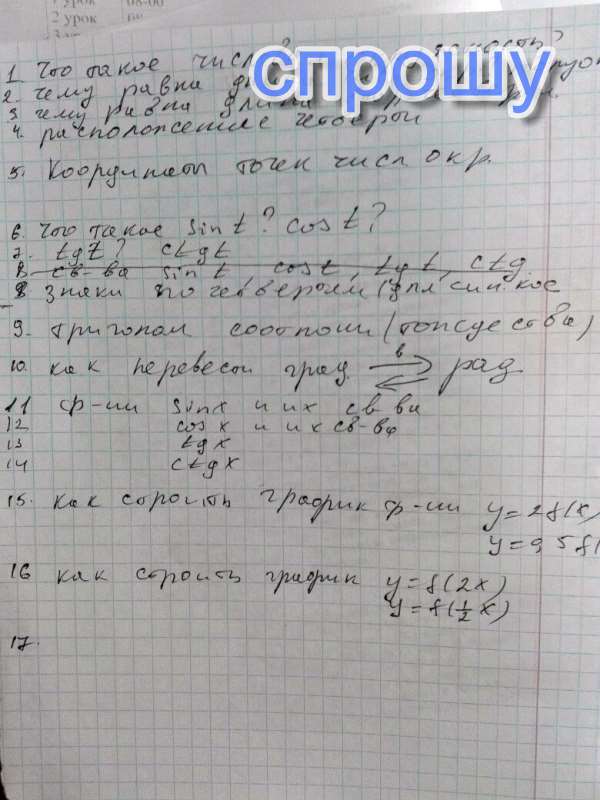 1 урок 08-00
2 урок
спрошу
1 Что такое числ
2. чему равна
3 чему равна длина
4. расположение четверти
5. Координаты точек числ окр.
6. Что такое sin t? cos t?
7. tg t? ctg t
8 св-ва sin t, cos t, tg t, ctg
8 знаки по четвертям (для син. кос
9. тригоном соотнош (тождества)
10. как перевести град в рад
11 ф-ии sin x и их св-ва
12 cos x и их св-ва
13 tg x
14 ctg x
15. как строить график ф-ии y = 2f(x)
y = 0,5 f(
16 как строить график y = f(2x)
y = f(½x)
17.